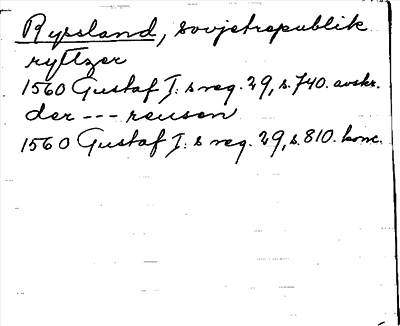 Ryssland, sovjetrepublik
ryszer
1560 Gustaf I: s reg. 29, s. 740. avskr.
der --- reusen
1560 Gustaf I: s reg. 29, s. 810. konc.